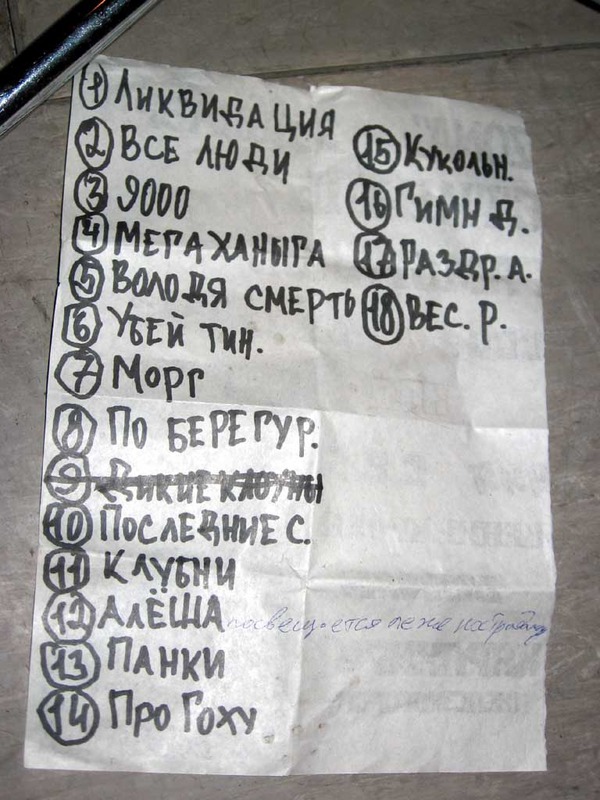 1 Ликвидация
2 ВСЕ ЛЮДИ
3 9000
4 МЕГАХАНЫГА
5 ВОЛОДЯ СМЕРТЬ
6 УБЕЙ ТИН.
7 МОРГ
8 ПО БЕРЕГУ Р.
9 ДИКИЕ КЛОУНЫ
10 ПОСЛЕДНИЕ С.
11 КЛУБНИ
12 АЛЁША посвещается
13 ПАНКИ
14 ПРО ГОХУ
15 КУКОЛЬН.
16 ГИМН Д.
17 РАЗДР. А.
18 ВЕС. Р.